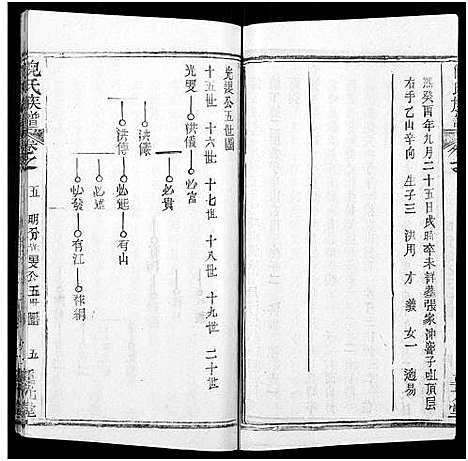 熙癸酉年九月二十五日戌時卒未詳葬張家沖壽子咀頂层
右手乙山辛向 生子三 洪用 才 義 女一 適易
光旻公五世圖
十五世 十六世 十七世 十八世 十九世 二十世
光旻 洪儀 必富
必貴
洪儀
洪傳 必延 有山
必述
必發 有江 祿綱
倪氏族譜 卷之 五 五